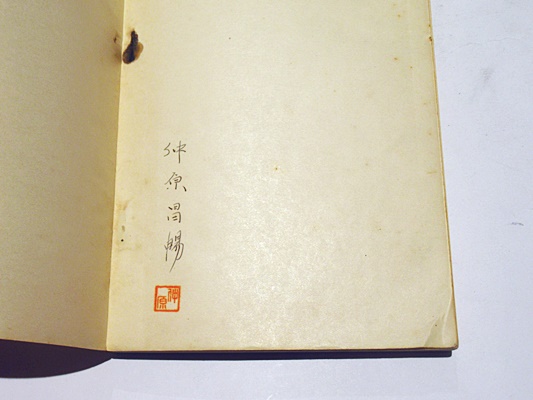 仲原昌暢
仲原